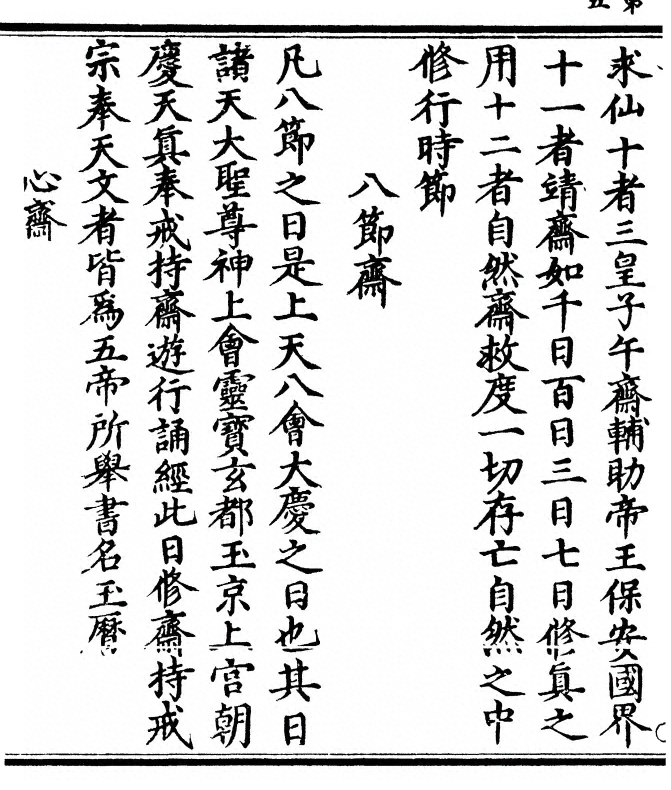 第五
求仙十者三皇子午齋輔助帝王保安國界
十一者靖齋如千日百日三日七日修真之
用十二者自然齋救度一切存亡自然之中
修行時節
八節齋
凡八節之日是上天八會大慶之日也其日
諸天大聖尊神上會靈寶玄都玉京上宮朝
慶天眞奉戒持齋遊行誦經此日修齋持戒
宗奉天文者皆爲五帝所舉書名玉曆
心齋